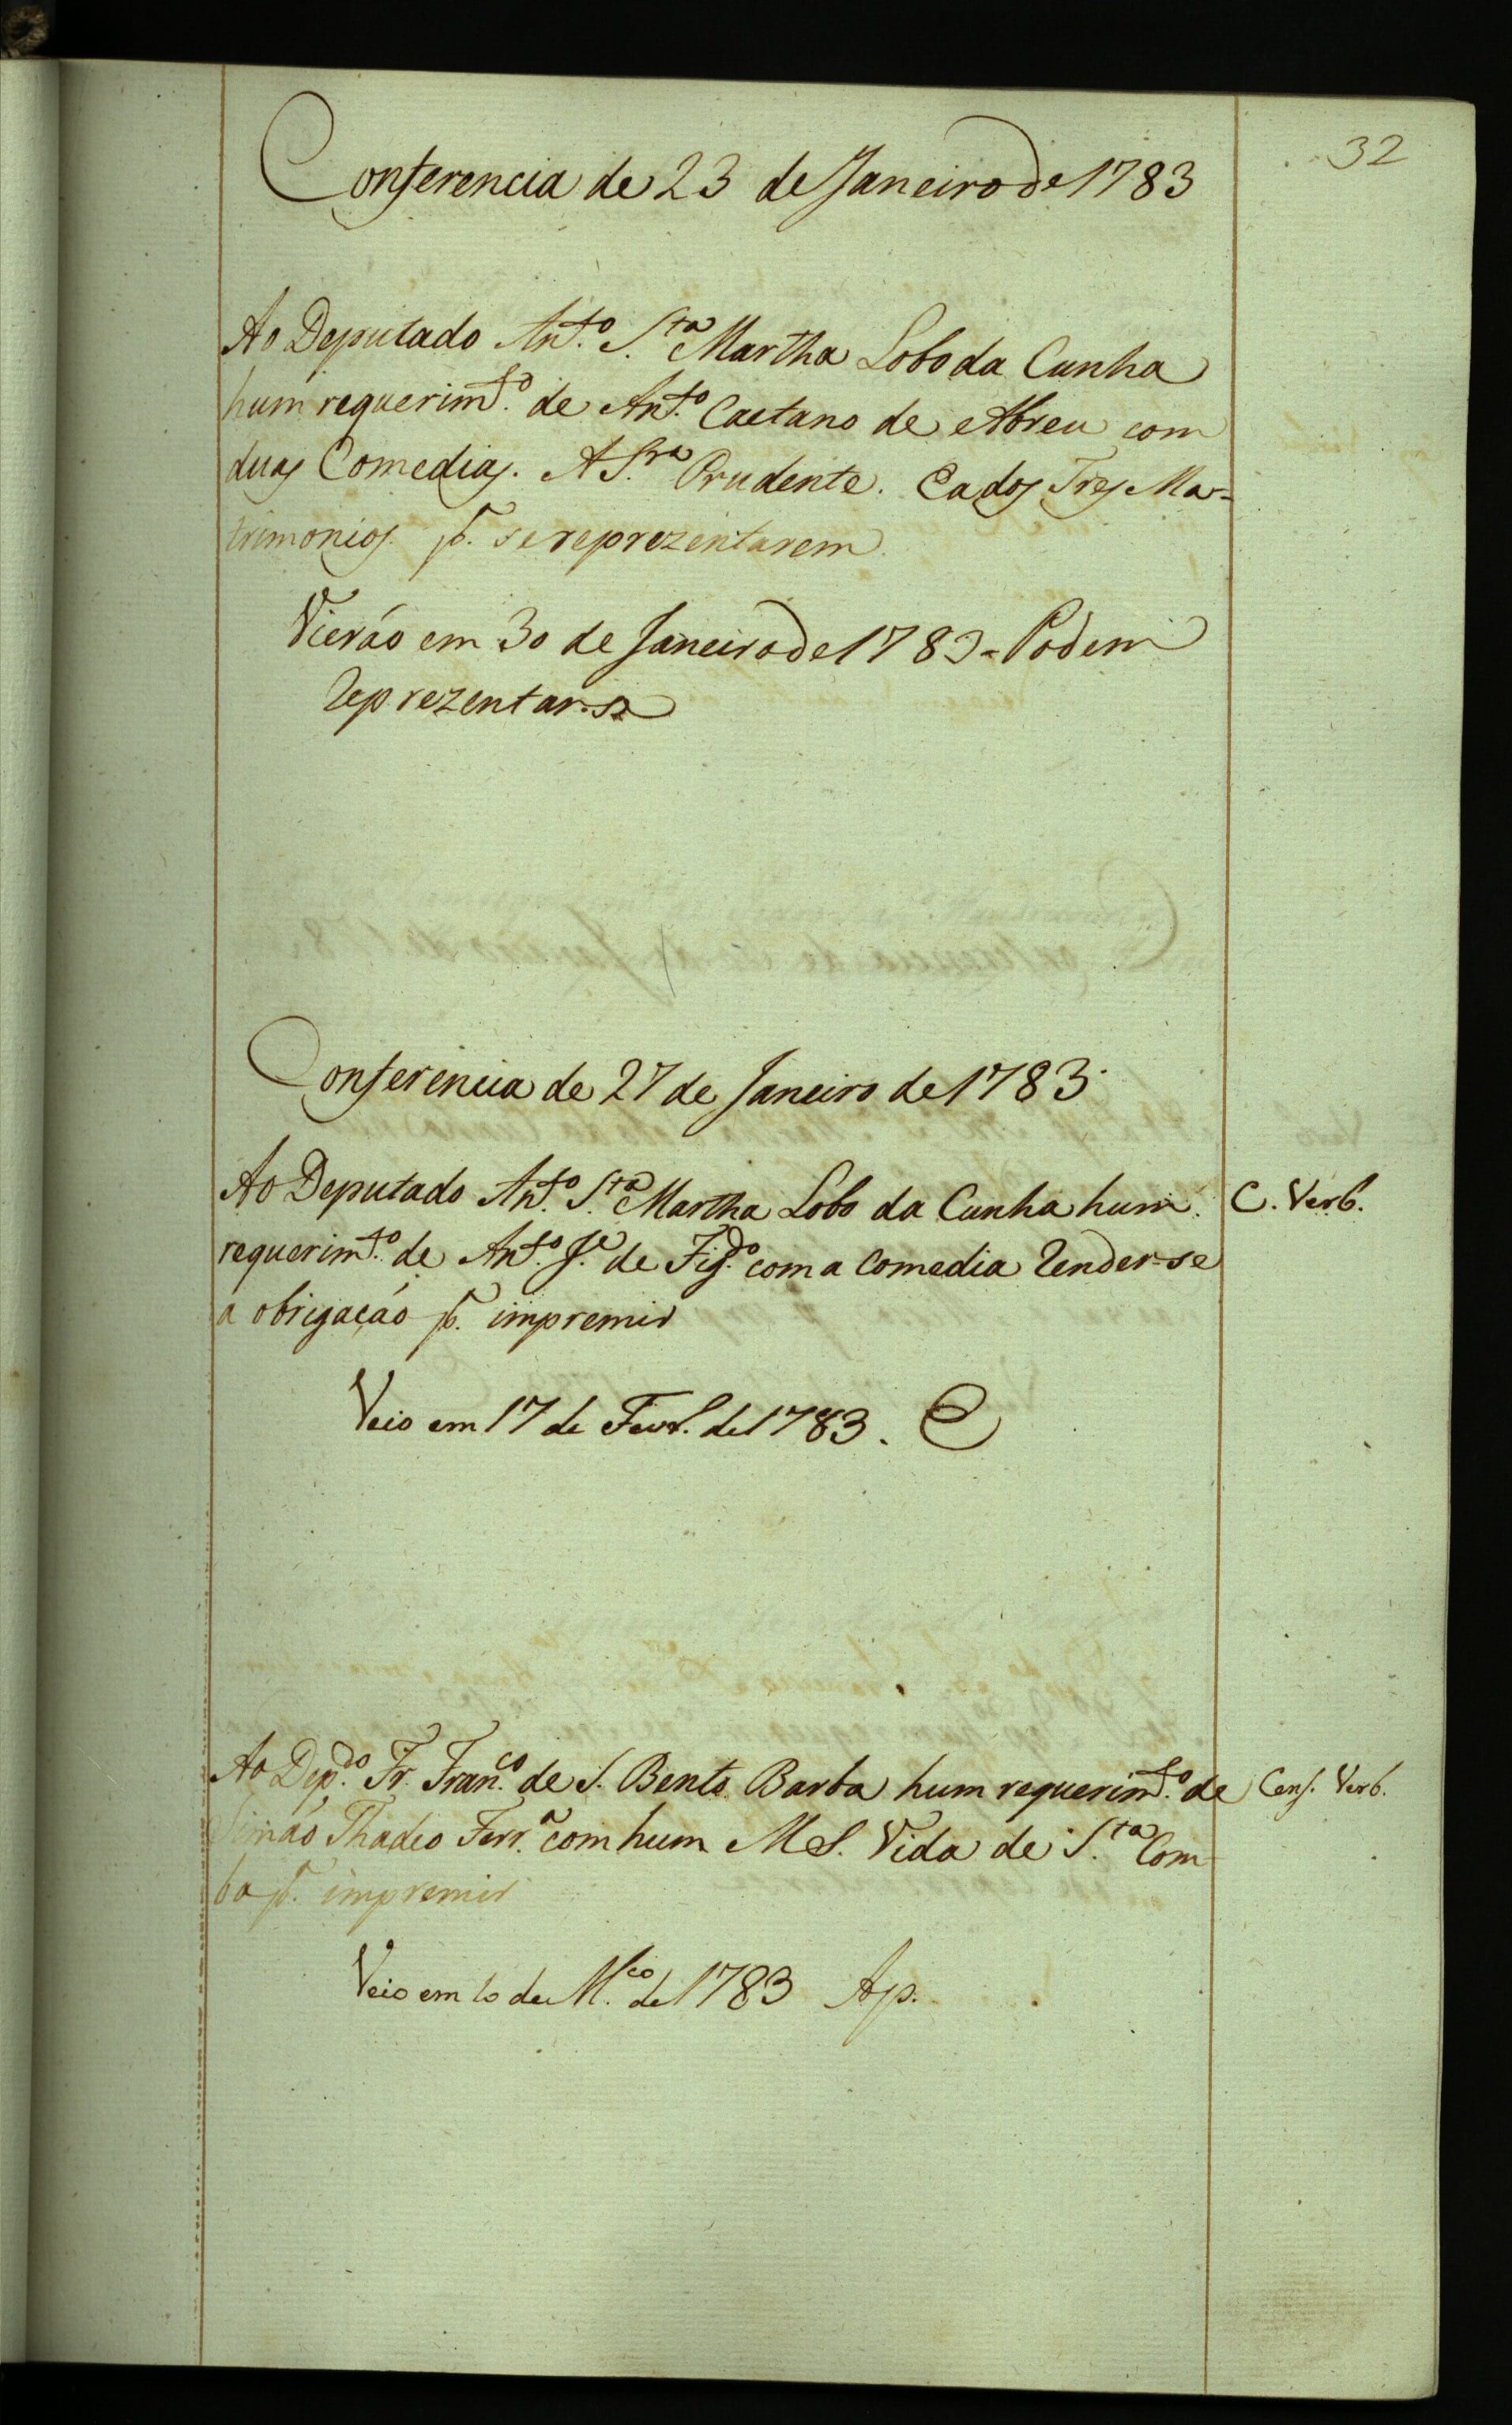 32
Conferencia de 23 de Janeiro de 1783
Ao Deputado Ant.º S.ta Martha Lobo da Cunha
hum requerim.to de Ant.º Caetano de Abreu com
duas Comedias. A S.ra Prudente. E a dos Tres Ma-
trimonios p.ª se reprezentarem
Vierão em 30 de Janeiro de 1783 - Podem
reprezentar-se
Conferencia de 27 de Janeiro de 1783.
Ao Deputado Ant.º S.ta Martha Lobo da Cunha hum C. Verb.
requerim.to de Ant.º J.e de Fig.do com a Comedia Render-se
á obrigação p.ª impremir
Veio em 17 de Fevr.º de 1783. E
Ao Dep.do Fr. Fran.co de S. Bento Barba hum requerim.to de Cens. Verb.
Simão Thadeo Ferr.ª com hum MS. Vida de S.ta Com
ba p.ª impremir
Veio em 10 de M.ço de 1783 Ap.